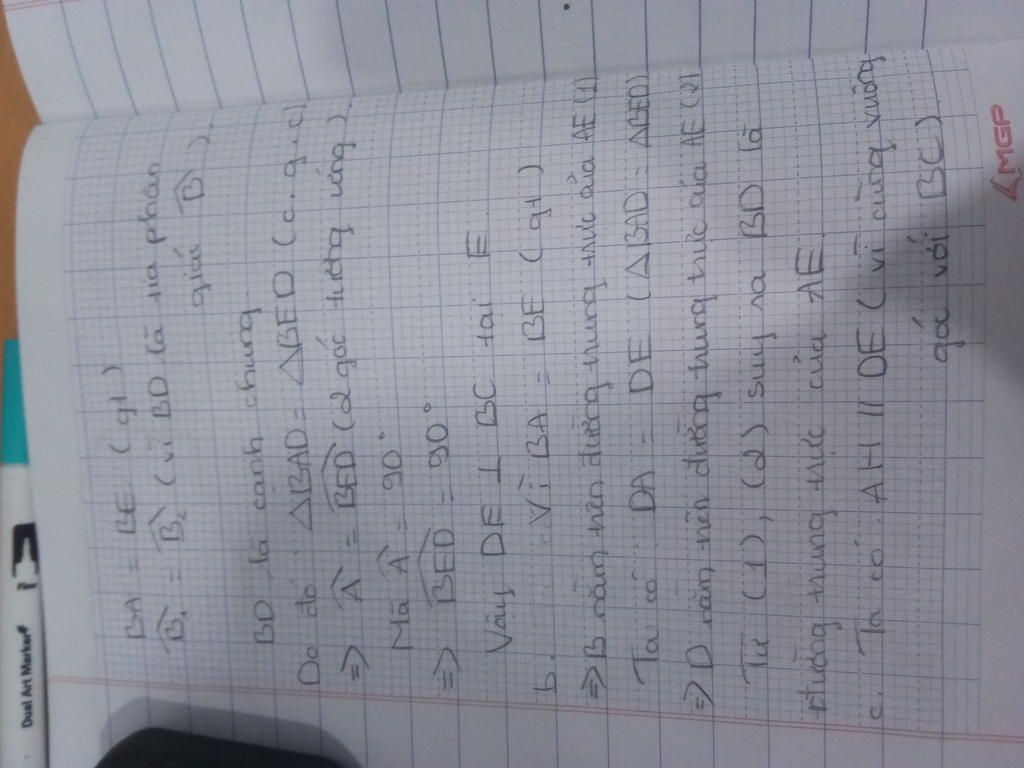 BA = BE (gt)
B̂₁ = B̂₂ (vì BD là tia phân
giác B̂)
BD là cạnh chung
Do đó ΔBAD = ΔBED (c.g.c)
=> Â = BED (2 góc tương ứng)
Mà Â = 90°
=> BED = 90°
Vậy DE ⊥ BC tại E
b. Vì BA = BE (gt)
=> B nằm trên đường trung trực của AE (1)
Ta có DA = DE (ΔBAD = ΔBED)
=> D nằm trên đường trung trực của AE (2)
Từ (1), (2) suy ra BD là
đường trung trực của AE
c. Ta có AH // DE (vì cùng vuông
góc với BC)
MGP
Dual Art Marker